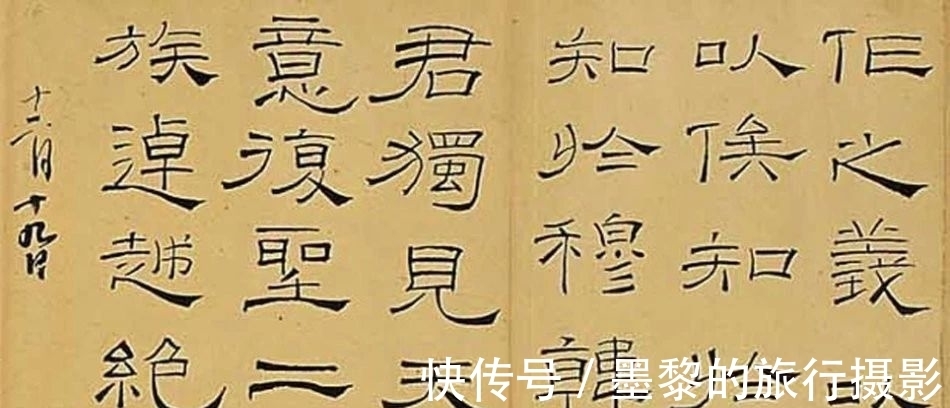 作之義
以俟知
知於穆韓
君獨見天
意復聖二
族逴越絕
月十九日
快传号 / 墨黎的旅行摄影